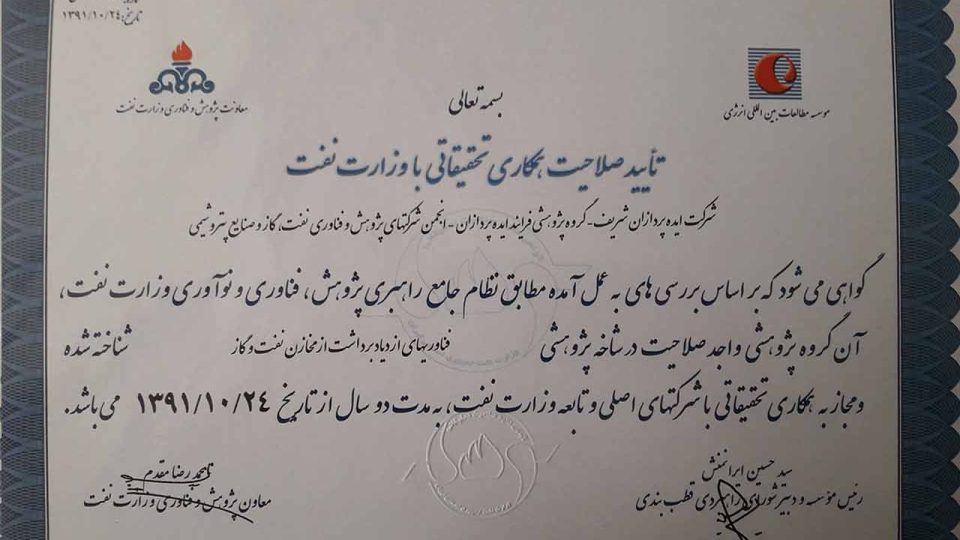 تاریخ: ۱۳۹۱/۱۰/۲۴
معاونت پژوهش و فناوری وزارت نفت
موسسه مطالعات بین المللی انرژی
بسمه تعالی
تأیید صلاحیت همکاری تحقیقاتی با وزارت نفت
شرکت ایده پردازان شریف - گروه پژوهشی فرایند ایده پردازان - انجمن شرکتهای پژوهش و فناوری نفت، گاز و صنایع پتروشیمی
گواهی می شود که بر اساس بررسی های به عمل آمده مطابق نظام جامع راهبری پژوهش، فناوری و نوآوری وزارت نفت،
آن گروه پژوهشی واجد صلاحیت در شاخه پژوهشی فناوریهای ازدیاد برداشت از مخازن نفت و گاز شناخته شده
و مجاز به همکاری تحقیقاتی با شرکتهای اصلی و تابعه وزارت نفت، به مدت دو سال از تاریخ ۱۳۹۱/۱۰/۲۴ می باشد.
سید حسین ایرانمنش
رئیس مؤسسه و دبیر شورای راهبردی قطب بندی
محمد رضا مقدم
معاون پژوهش و فناوری وزارت نفت